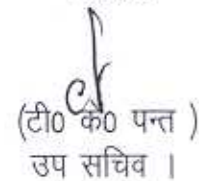 (टी0 के0 पन्त )
उप सचिव ।